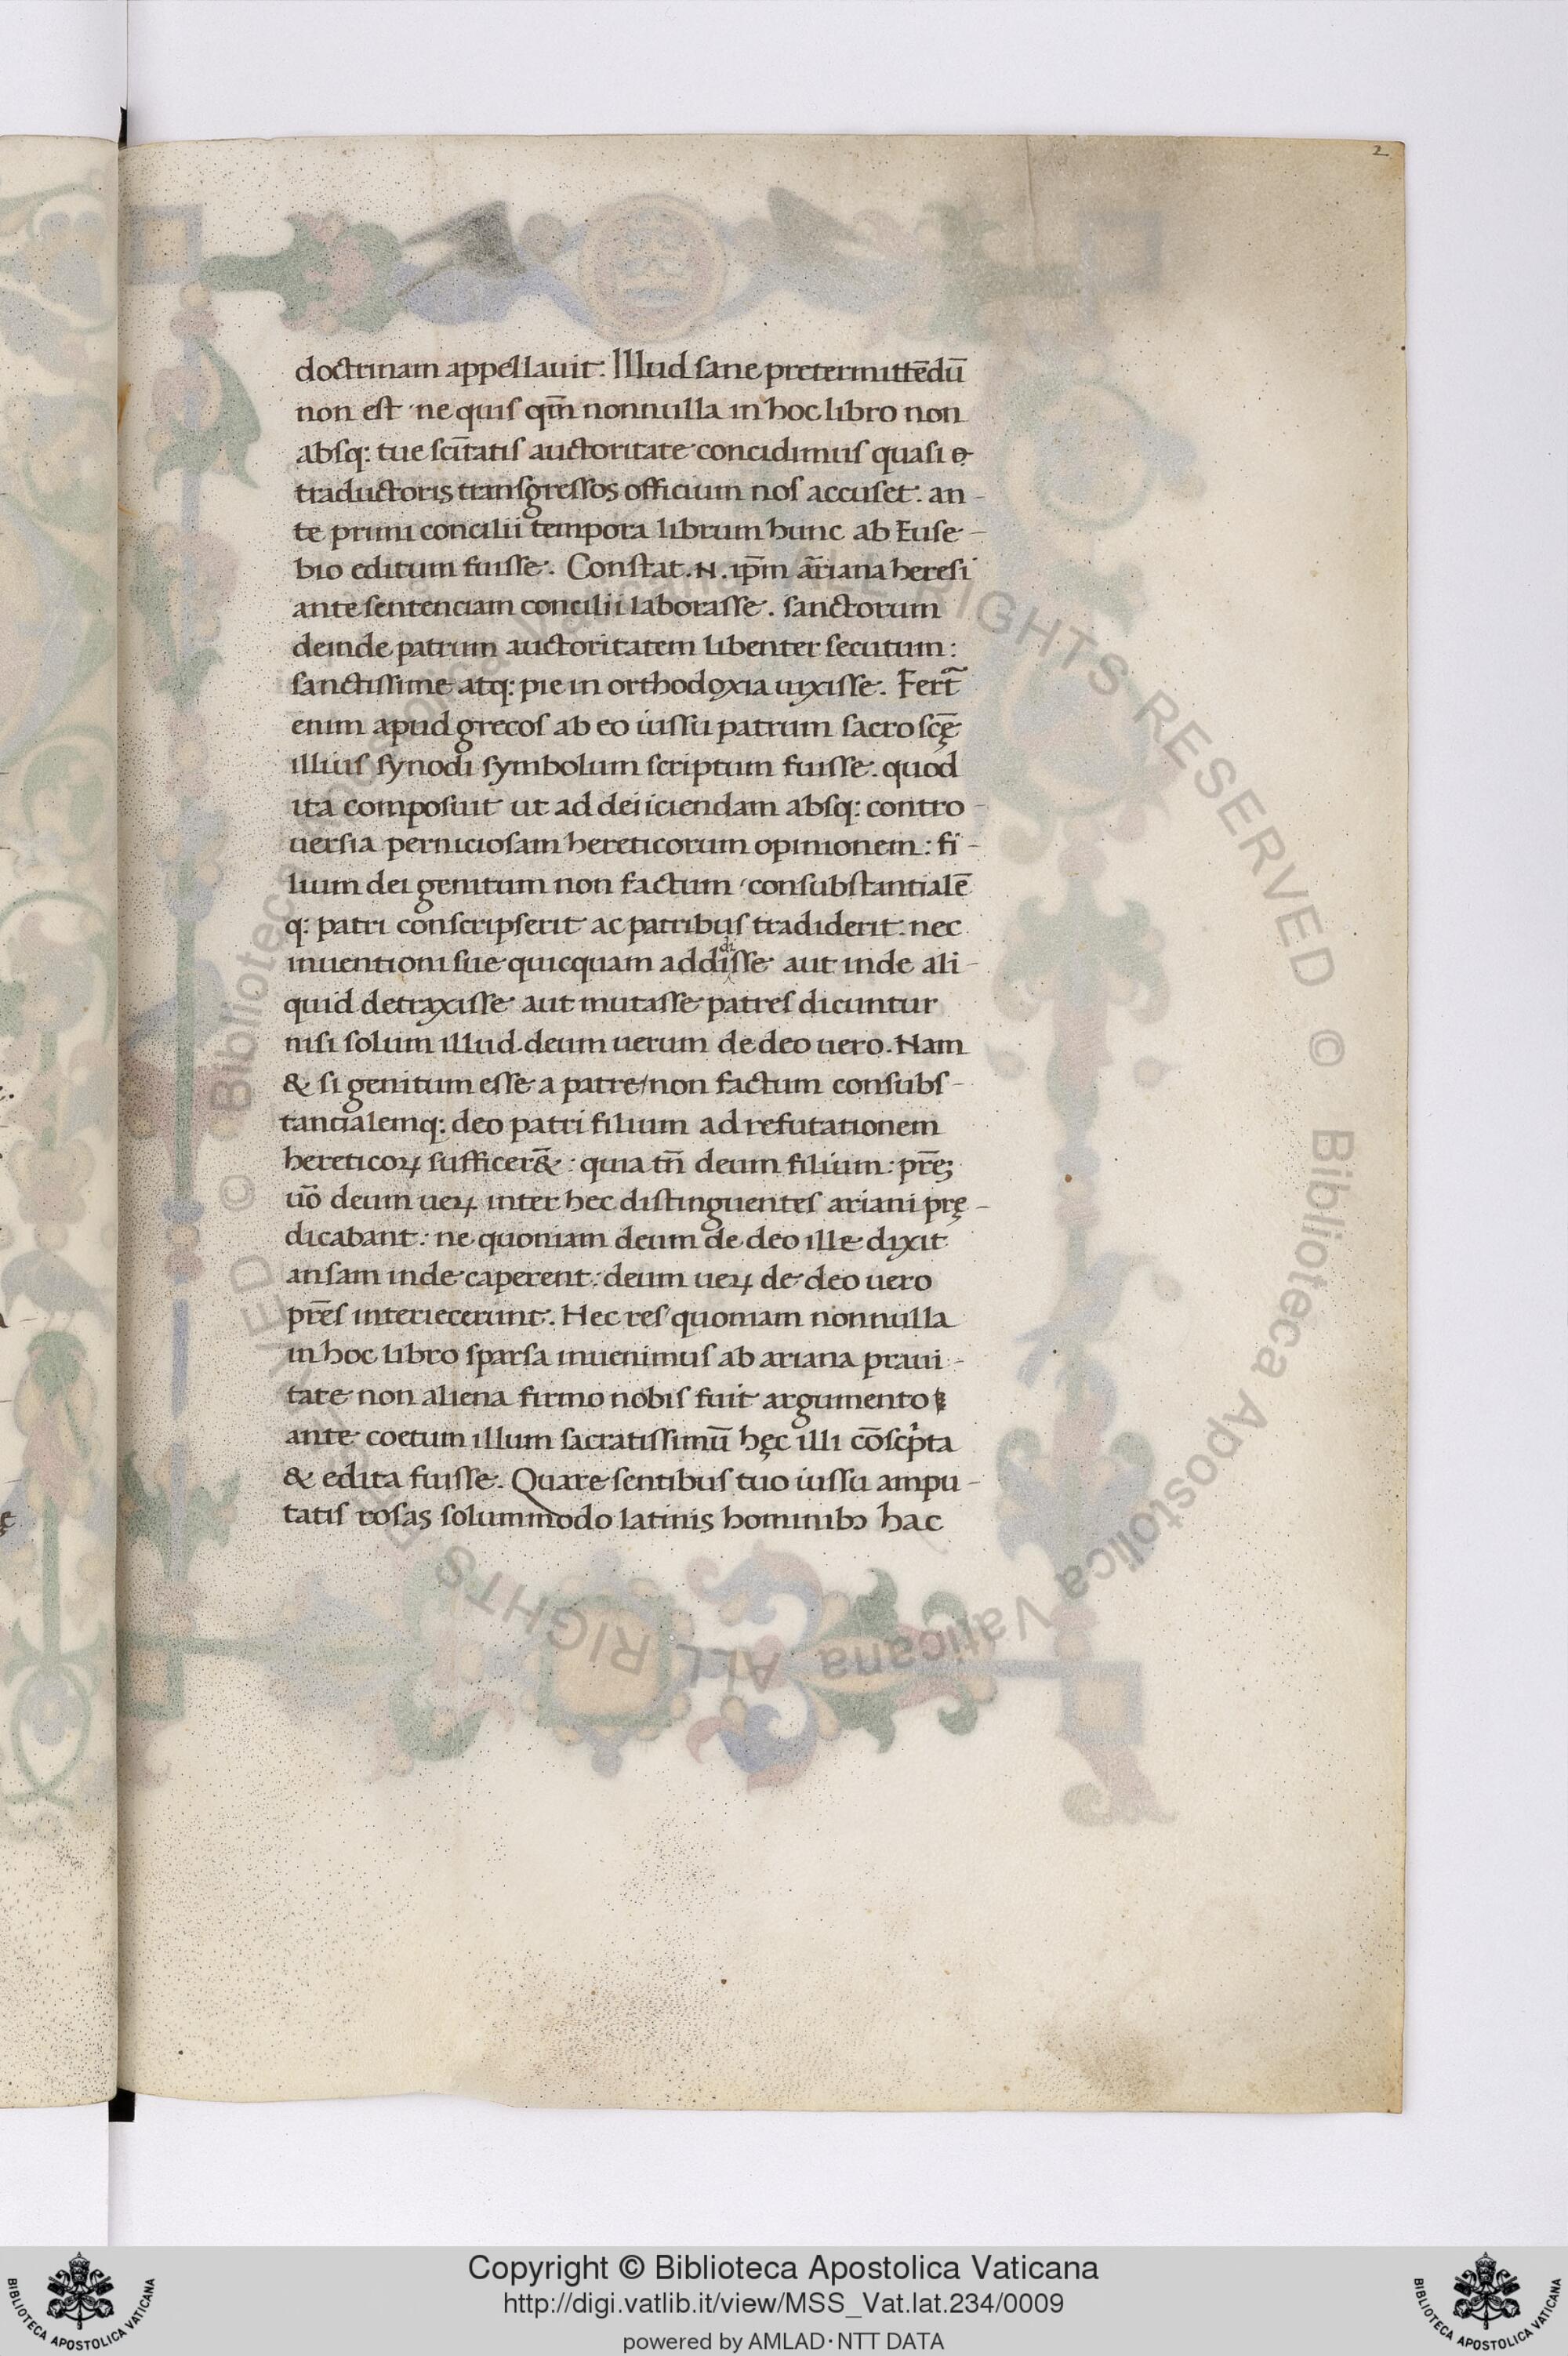 2
doctrinam appellauit. Illud sane pretermittēdū
non est ne quis qm̄ nonnulla in hoc libro non
absq: tue scītatis auctoritate concidimus quasi e
traductoris transgressos officium nos accuset. an-
te primi concilii tempora librum hunc ab Euse-
bio editum fuisse. Constat .N. ip̄m ar̄iana heresi
ante sentenciam concilii laborasse. sanctorum
deinde patrum auctoritatem libenter secutum:
sanctissime atq: pie in orthodoxia uixisse. Fert̃
enim apud grecos ab eo iussu patrum sacro scę̄
illius synodi symbolum scriptum fuisse. quod
ita composuit ut ad deiiciendam absq: contro-
uersia perniciosam hereticorum opinionem: fi-
lium dei genitum non factum consubstantialē
q: patri conscripserit ac patribus tradiderit. nec
di
inuentioni sue quicquam addisse aut inde ali-
quid detraxisse aut mutasse patres dicuntur
nisi solum illud. deum uerum de deo uero. Nam
& si genitum esse a patre/non factum consubs-
tancialemq: deo patri filium ad refutationem
hereticoꝝ sufficer&̄: quia tn̄ deum filium: pr̄eꝫ
uō deum ueꝝ inter hec distinguentes ariani prę-
dicabant: ne quoniam deum de deo ille dixit
ansam inde caperent: deum ueꝝ de deo uero
pr̄es interiecerunt. Hec res quoniam nonnulla
in hoc libro sparsa inuenimus ab ariana praui-
tate non aliena firmo nobis fuit argumento
ante coetum illum sacratissimū hęc illi cōscpͥta
& edita fuisse. Quare sentibus tuo iussu ampu-
tatis rosas solummodo latinis hominibꝫ hac
© Biblioteca Apostolica Vaticana ALL RIGHTS RESERVED © Biblioteca Apostolica Vaticana ALL RIGHTS RESERVED
Copyright © Biblioteca Apostolica Vaticana
http://digi.vatlib.it/view/MSS_Vat.lat.234/0009
powered by AMLAD·NTT DATA
BIBLIOTECA APOSTOLICA VATICANA
BIBLIOTECA APOSTOLICA VATICANA